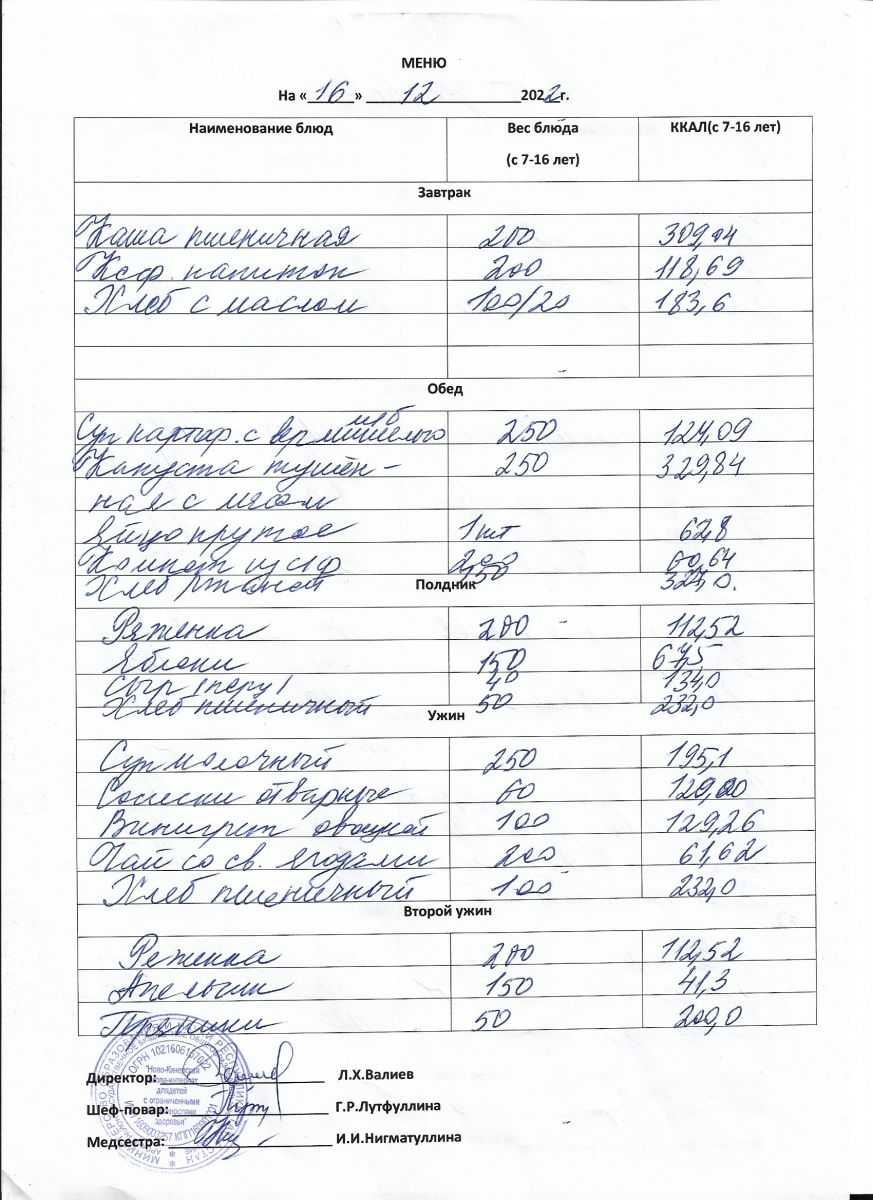 МЕНЮ
На «16» 12 2022г.
Наименование блюд Вес блюда (с 7-16 лет) ККАЛ(с 7-16 лет)
Завтрак
Каша пшеничная 200 309,04
Коф. напиток 200 118,69
Хлеб с маслом 100/20 183,6
Обед
Суп картоф. с вермишелью м/б 250 124,09
Капуста тушён- 250 329,84
ная с мясом
Яйцо крутое 1шт 62,8
Компот из с/ф 200 60,64
Хлеб ржаной 150
Полдник
Ряженка 200 112,52
Яблоки 150 67,5
Сыр /перу/ 40 134,0
Хлеб пшеничный 50 232,0
Ужин
Суп молочный 250 195,1
Сосиски отварные 60
Винигрет овощной 100 129,26
Чай со св. ягодами 200 61,62
Хлеб пшеничный 100 232,0
Второй ужин
Реженка 200 112,52
Апельсин 150 41,3
Пряники 50 200,0
Директор: Л.Х.Валиев
Шеф-повар: Г.Р.Лутфуллина
Медсестра: И.И.Нигматуллина
ОГРН 1021606157022
"Ново-Кинерская
школа-интернат
для детей
с ограниченными
возможностями
здоровья"